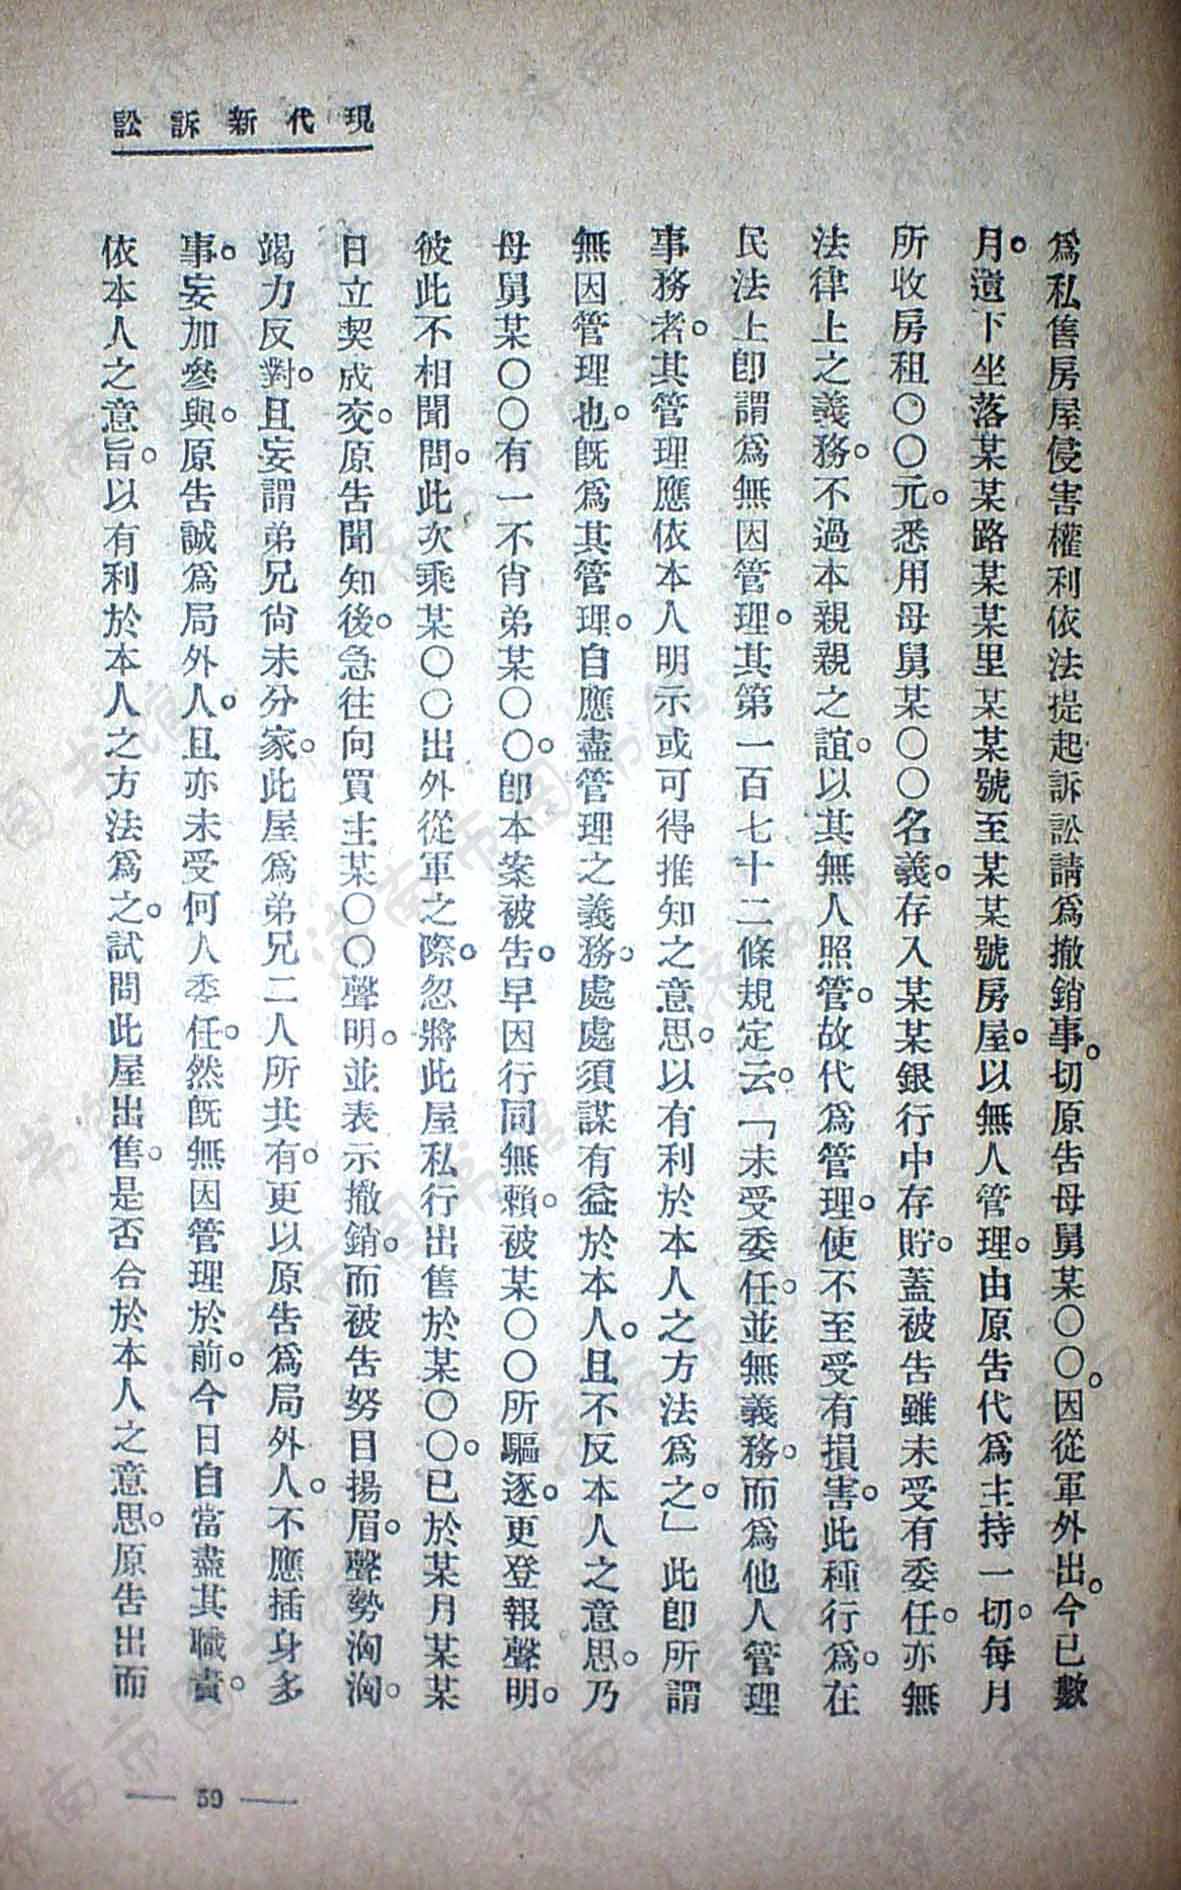 現代新訴訟
爲私售房屋侵害權利依法提起訴訟請爲撤銷事。切原告母舅某〇〇。因從軍外出。今已數
月。遺下坐落某某路某某里某某號至某某號房屋。以無人管理。由原告代爲主持一切。每月
所收房租〇〇元。悉用母舅某〇〇名義。存入某某銀行中存貯。蓋被告雖未受有委任。亦無
法律上之義務。不過本親親之誼。以其無人照管。故代爲管理。使不至受有損害。此種行爲。在
民法上卽謂爲無因管理。其第一百七十二條規定云。「未受委任。並無義務。而爲他人管理
事務者。其管理應依本人明示或可得推知之意思。以有利於本人之方法爲之。」此卽所謂
無因管理也。旣爲其管理。自應盡管理之義務。處處須謀有益於本人。且不反本人之意思。乃
母舅某〇〇有一不肖弟某〇〇。卽本案被告。早因行同無賴。被某〇〇所驅逐。更登報聲明。
彼此不相聞問。此次乘某〇〇出外從軍之際。忽將此屋私行出售於某〇〇。已於某月某某
日立契成交。原告聞知後。急往向買主某〇〇聲明。並表示撤銷。而被告努目揚眉。聲勢洶洶。
竭力反對。且妄謂弟兄尙未分家。此屋爲弟兄二人所共有。更以原告爲局外人。不應插身多
事。妄加參與。原告誠爲局外人。且亦未受何人委任。然旣無因管理於前。今日自當盡其職責。
依本人之意旨。以有利於本人之方法爲之。試問此屋出售。是否合於本人之意思。原告出而
— 59 —
济南市图书馆